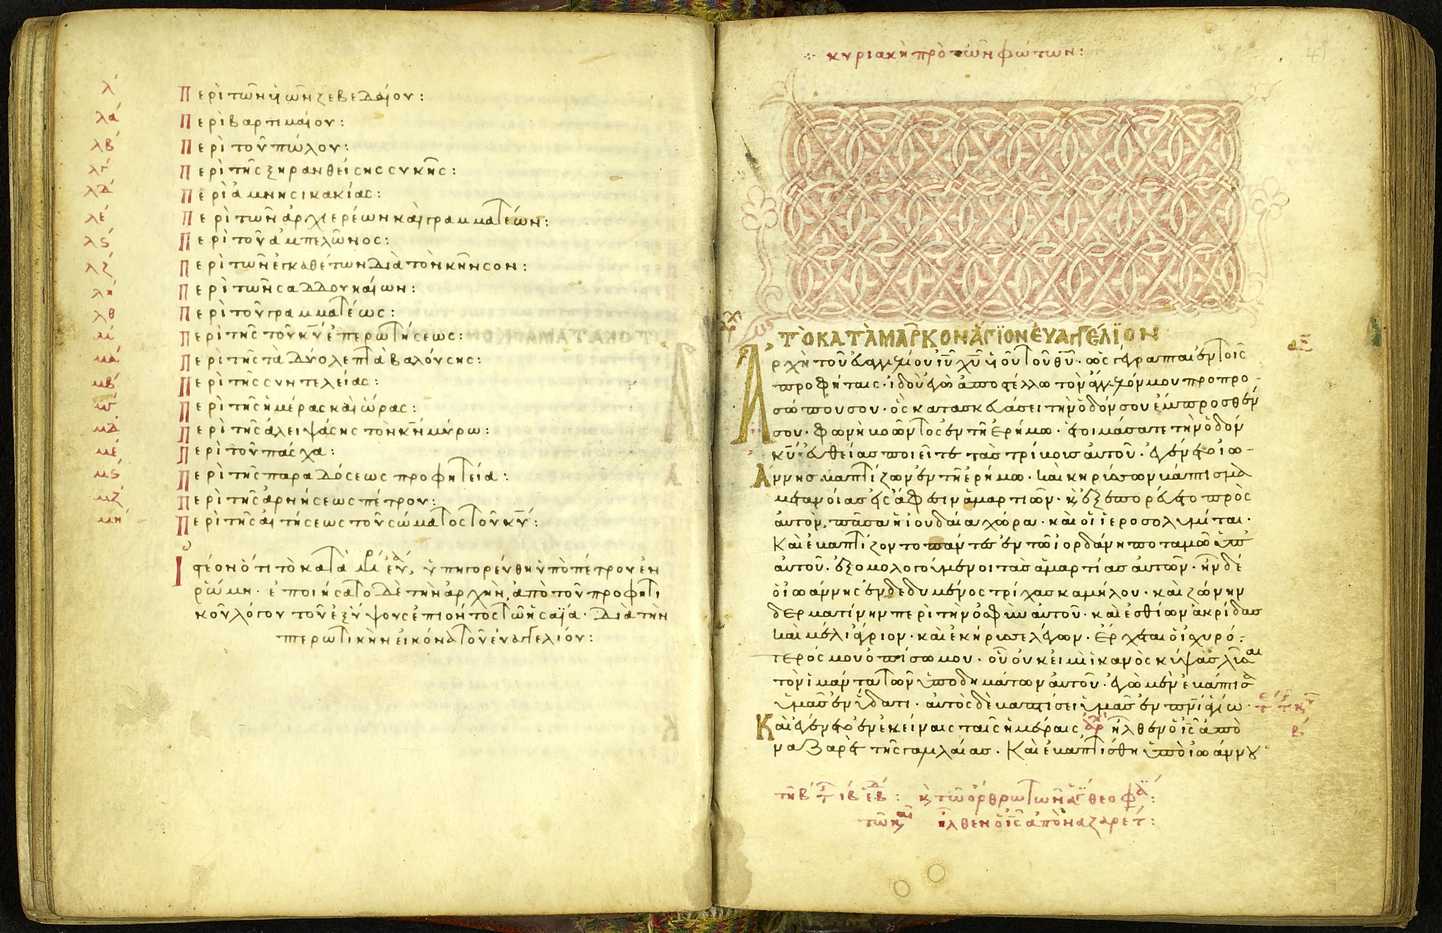 λ Περὶ τῶν υἱῶν ζεβεδαίου:
λα Περὶ βαρτιμαίου:
λβ Περὶ τοῦ πώλου:
λγ Περὶ τῆς ξηρανθείσης συκῆς:
λδ Περὶ ἀμνησικακίας:
λε Περὶ τῶν ἀρχιερέων καὶ γραμματέων:
λς Περὶ τοῦ ἀμπελῶνος:
λζ Περὶ τῶν ἐγκαθέτων διὰ τὸν κῆνσον:
λη Περὶ τῶν σαδδουκαίων:
λθ Περὶ τοῦ γραμματέως:
μ Περὶ τῆς τοῦ κυ ἐπερωτήσεως:
μα Περὶ τῆς τὰ δύο λεπτὰ βαλούσης:
μβ Περὶ τῆς συντελείας:
μγ Περὶ τῆς ἡμέρας καὶ ὥρας:
μδ Περὶ τῆς ἀλειψάσης τὸν κν μύρω:
με Περὶ τοῦ πάσχα:
μς Περὶ τῆς παραδόσεως προφητεία:
μζ Περὶ τῆς ἀρνήσεως πέτρου:
μη Περὶ τῆς αἰτήσεως τοῦ σώματος τοῦ κυ:
Ἰστέον ὅτι τὸ κατὰ ὑπηγορεύθη ὑπὸ πέτρου ἐν
ρώμη· ἐποιήσατο δὲ τὴν ἀρχὴν, ἀπὸ τοῦ προφητι
κοῦ λόγου τοῦ ἐξ ὕψους ἐπιόντος τῶ ἡσαΐα· διὰ τὴν
πτερωτικὴν εἰκόνα τοῦ εὐαγγελίου:
κυριακῆ πρὸ τῶν φώτων:
ΤῸ ΚΑΤᾺ ΜᾶΡΚΟΝ ἍΓΙΟΝ ΕΥΑΓΓΈΛΙΟΝ
Ἀρχὴ τοῦ εὐαγγελίου ιυ χυ υἱοῦ τοῦ θυ· ὡς γέγραπται ἐν τοῖς
προφήταις· ἰδοὺ ἐγὼ ἀποστέλλω τὸν ἄγγελόν μου πρὸ προ
σώπου σου· ὃς κατασκευάσει τὴν ὁδόν σου ἔμπροσθέν
σου· φωνὴ βοῶντος ἐν τῆ ἐρήμω· ἑτοιμάσατε τὴν ὁδὸν
κυ· εὐθείας ποιεῖτε τὰς τρίβους αὐτοῦ· ἐγένετο ἰω
άννης βαπτίζων ἐν τῆ ἐρήμω· καὶ κηρύσσων βάπτισμα
μετανοίας εἰς ἄφεσιν ἁμαρτιῶν· κ ἐξεπορεύετο πρὸς
αὐτὸν, πᾶσα ἡ ἰουδαία χώρα· καὶ οἱ ἱεροσολυμῖται·
Καὶ ἐβαπτίζοντο πάντες ἐν τῶ ἰορδάνη ποταμῶ ὑπ
αὐτοῦ· ἐξομολογούμενοι τὰς ἁμαρτίας αὐτῶν· ἦν δὲ
ὁ ἰωάννης ἐνδεδυμένος τρίχας καμήλου· καὶ ζώνην
δερματίνην περὶ τὴν ὀσφὺν αὐτοῦ· καὶ ἐσθίων ἀκρίδας
καὶ μέλι ἄγριον· καὶ ἐκήρυσσε λέγων· ἔρχεται ὁ ἰσχυρό
τερός μου ὀπίσω μου· οὗ οὐκ εἰμὶ ἱκανὸς κύψας λῦσαι
τὸν ἱμάντα τῶν ὑποδημάτων αὐτοῦ· ἐγὼ μὲν ἐβάπτισα
ὑμᾶς ἐν ὕδατι· αὐτὸς δὲ βαπτίσει ὑμᾶς ἐν πνι ἁγίω·
Καὶ ἐγένετο ἐν ἐκείναις ταῖς ἡμέραις ἦλθεν ὁ ις ἀπὸ
ναζαρὲτ τῆς γαλιλαίας· Καὶ ἐβαπτίσθη ὑπὸ ἰωάννου
κ τῶ ὄρθρω τῶν ἁγ θεοφα:
τῶ κ ἦλθεν ὁ ις ἀπὸ ναζαρέτ: